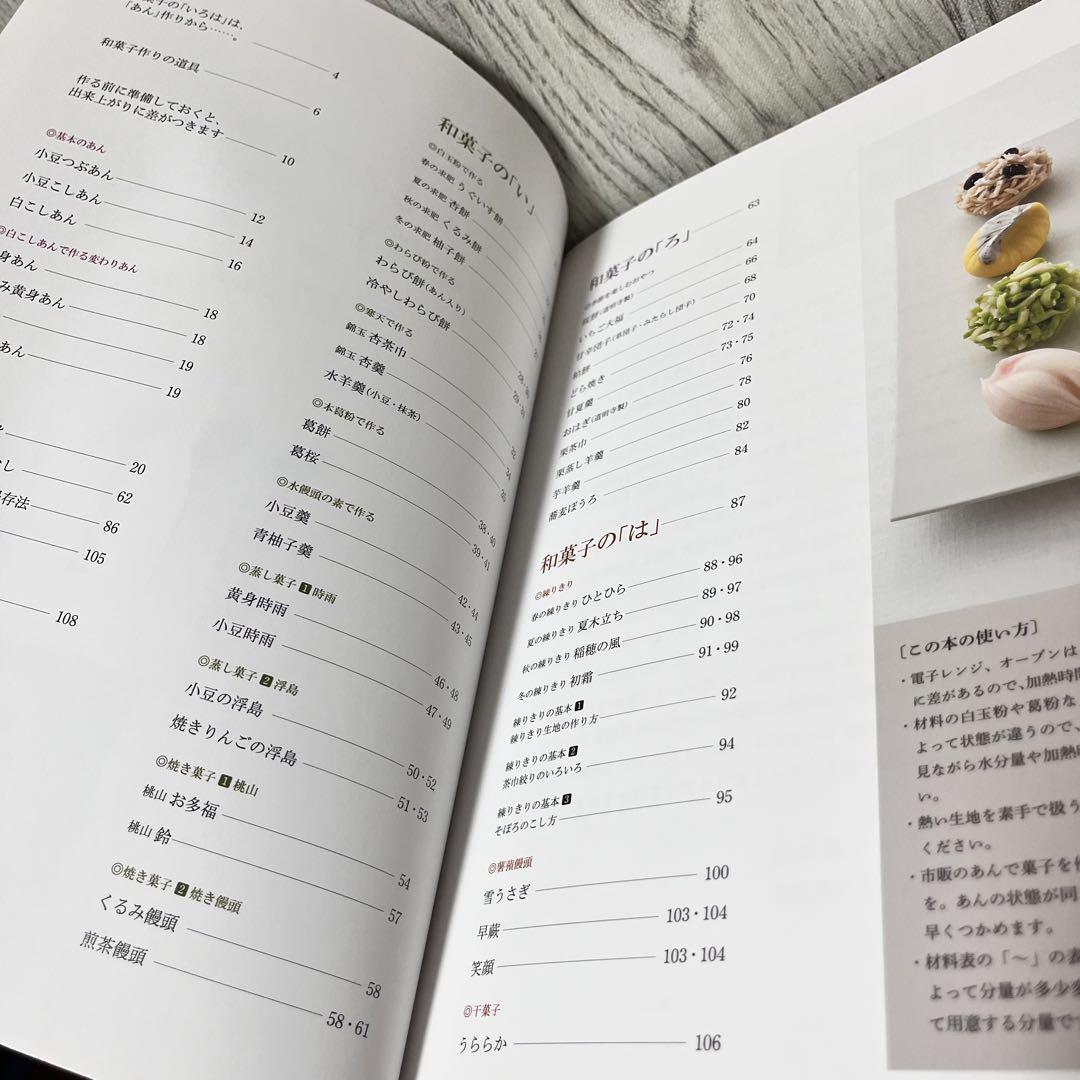 子の「いろは」は、
「あん」作りから……。 4
和菓子作りの道具 6
作る前に準備しておくと、
出来上がりに差がつきます 10
◎基本のあん
小豆つぶあん 12
小豆こしあん 14
白こしあん 16
◎白こしあんで作る変わりあん
身あん 18
み黄身あん 18
19
あん 19
20
し 62
存法 86
105
108
和菓子の「い」
◎白玉粉で作る
春の求肥 うぐいす餅
夏の求肥 杏餅
秋の求肥 くるみ餅
冬の求肥 柚子餅
◎わらび粉で作る
わらび餅(あん入り)
冷やしわらび餅
◎寒天で作る
錦玉 杏茶巾
錦玉 杏羹
水羊羹(小豆・抹茶)
◎本葛粉で作る
葛餅
葛桜
◎水饅頭の素で作る
小豆羹 38・40
青柚子羹 39・41
◎蒸し菓子 1 時雨
黄身時雨 42・44
小豆時雨 43・45
◎蒸し菓子 2 浮島
小豆の浮島 46・48
焼きりんごの浮島 47・49
◎焼き菓子 1 桃山
桃山 お多福 50・52
桃山 鈴 51・53
◎焼き菓子 2 焼き饅頭
54
57
くるみ饅頭 58
煎茶饅頭 58・61
和菓子の「ろ」 63
◎季節を楽しむおやつ
桜餅(道明寺製) 64
いちご大福 66
甘辛団子(草団子・みたらし団子) 68
柏餅 70
どら焼き 72・74
甘夏羹 73・75
おはぎ(道明寺製) 76
栗茶巾 78
栗蒸し羊羹 80
芋羊羹 82
蕎麦ぼうろ 84
和菓子の「は」 87
◎練りきり
春の練りきり ひとひら 88・96
夏の練りきり 夏木立ち 89・97
秋の練りきり 稲穂の風 90・98
冬の練りきり 初霜 91・99
練りきりの基本 1
練りきり生地の作り方 92
練りきりの基本 2
茶巾絞りのいろいろ 94
練りきりの基本 3
そぼろのこし方 95
◎薯蕷饅頭
雪うさぎ 100
早蕨 103・104
笑顔 103・104
◎干菓子
うららか 106
［この本の使い方］
・電子レンジ、オーブンは
に差があるので、加熱時間
・材料の白玉粉や葛粉な
よって状態が違うので、
見ながら水分量や加熱
い。
・熱い生地を素手で扱う
ください。
・市販のあんで菓子を作
を。あんの状態が同
早くつかめます。
・材料表の「～」の表
よって分量が多少多
て用意する分量で